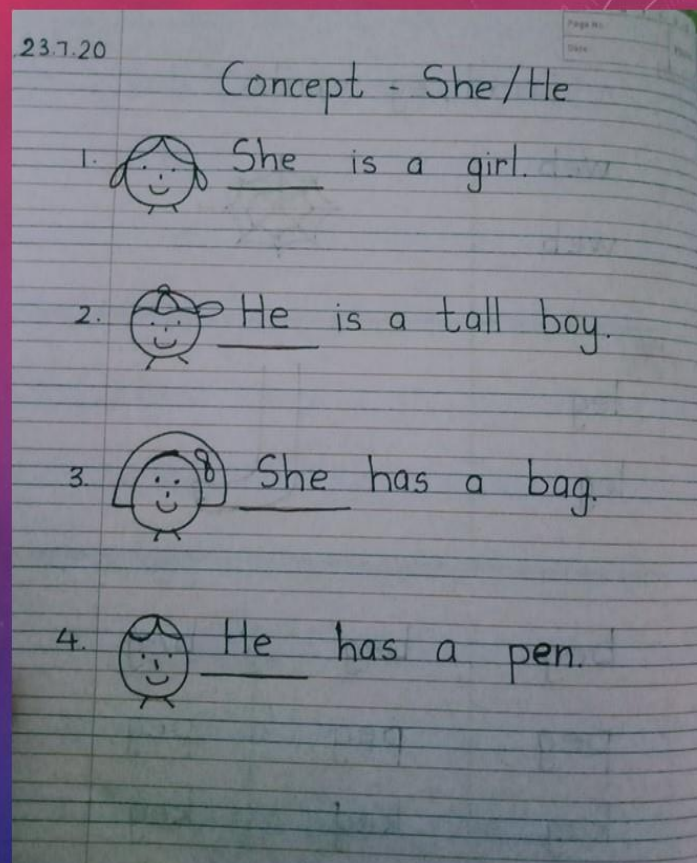 Page No.
Date
23.7.20
Concept - She/He
1. She is a girl.
2. He is a tall boy.
3. She has a bag.
4. He has a pen.